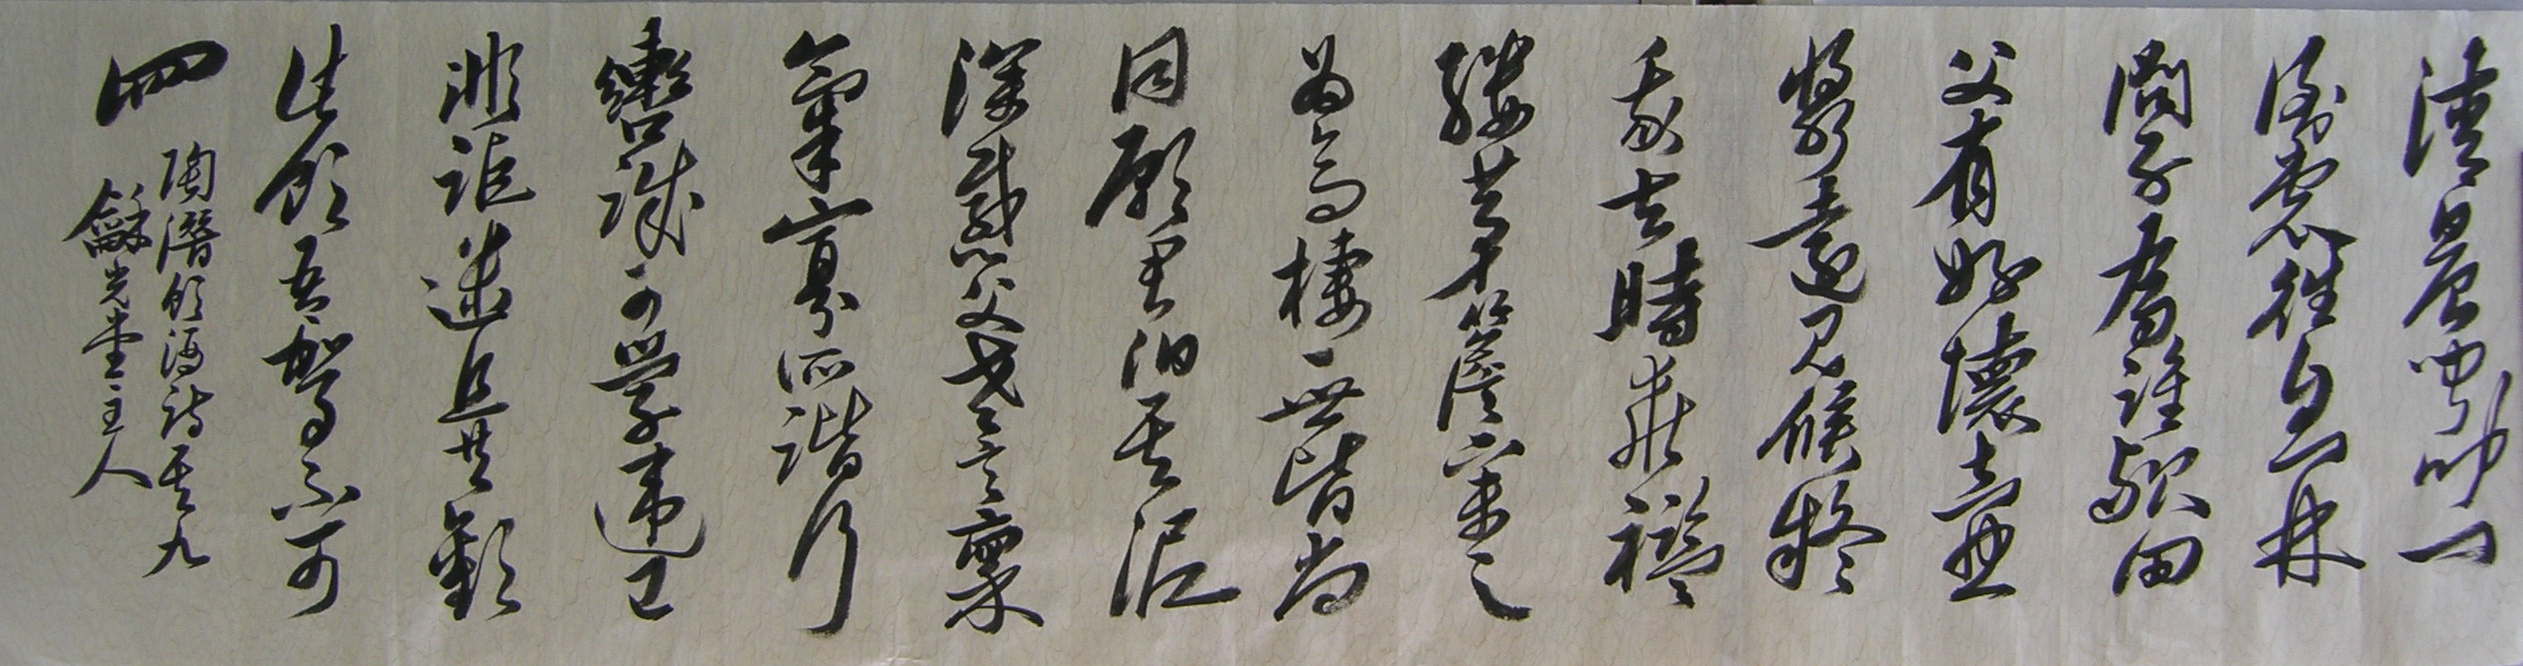 清晨聞叩門
倒裳往自開
問子為誰歟田
父有好懷壺
漿遠見候疑
我與時乖襤
縷茅簷下未足
為高棲一世皆尚
同願君汩其泥
深感父老言稟
氣寡所諧紆
轡誠可學違己
非詎迷且共歡
此飲吾駕不可
回
陶潛飲酒詩其九
龢光堂主人